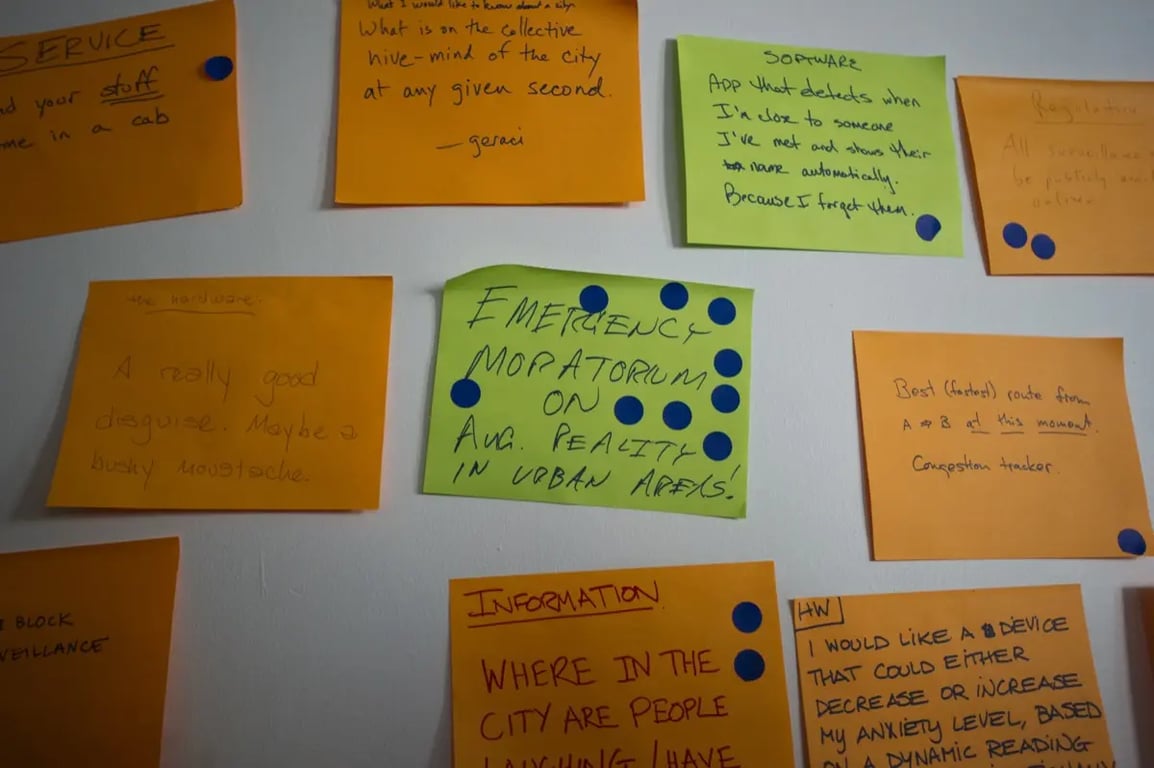 SERVICE
your stuff
me in a cab
What I would like to know about a city.
What is on the collective
hive-mind of the city
at any given second.
— geraci
SOFTWARE
App that detects when
I'm close to someone
I've met and shows their
name automatically.
Because I forget them.
Regulation
All surveillance
be publicly
online.
the hardware:
A really good
disguise. Maybe a
bushy moustache.
EMERGENCY
MORATORIUM
ON
AUG. REALITY
IN URBAN AREAS!
Best (fastest) route from
A → B at this moment.
Congestion tracker.
BLOCK
VEILLANCE
INFORMATION
WHERE IN THE
CITY ARE PEOPLE
LAUGHING / HAVE
HW
I WOULD LIKE A DEVICE
THAT COULD EITHER
DECREASE OR INCREASE
MY ANXIETY LEVEL, BASED
ON A DYNAMIC READING